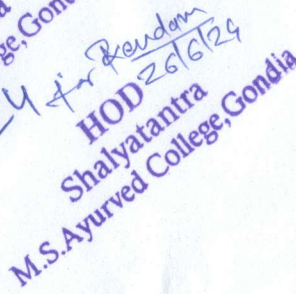 ge, Gon
26/6/24
HOD
Shalyatantra
M.S.Ayurved College,Gondia